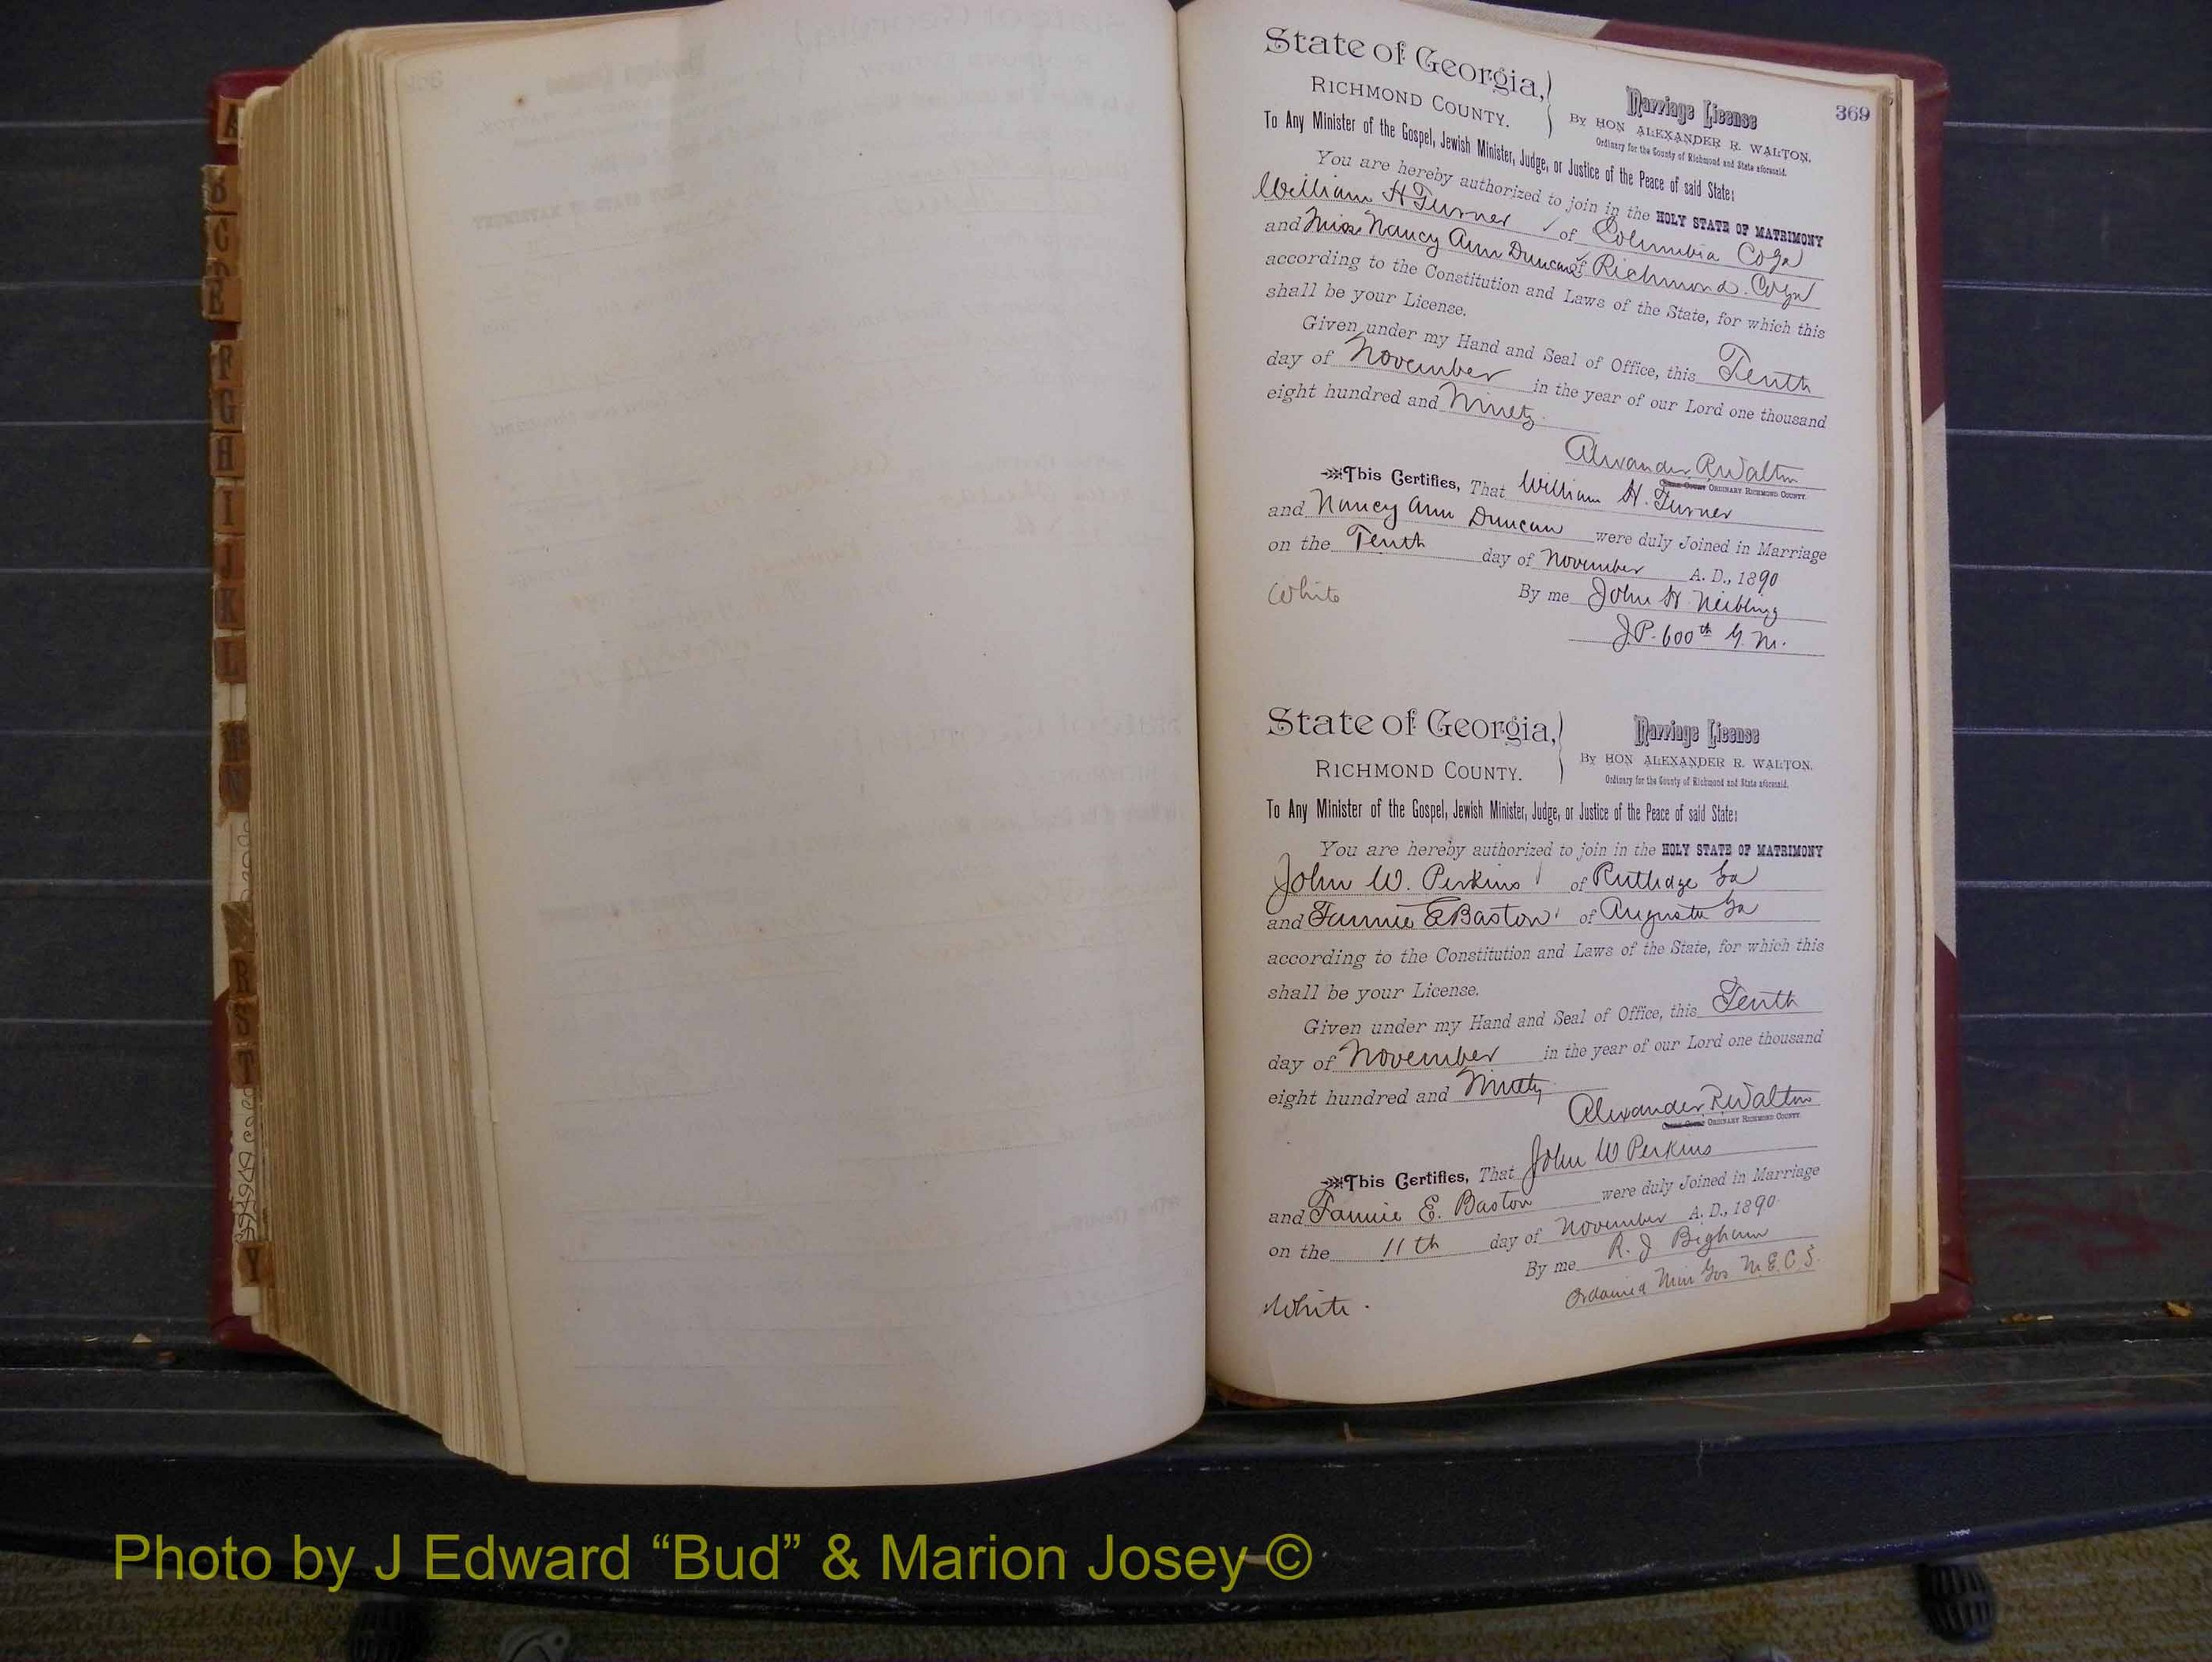 369
State of Georgia,
RICHMOND COUNTY.
Marriage License
By HON ALEXANDER R. WALTON,
Ordinary for the County of Richmond and State aforesaid.
To Any Minister of the Gospel, Jewish Minister, Judge, or Justice of the Peace of said State:
You are hereby authorized to join in the HOLY STATE OF MATRIMONY
William H Turner of Columbia Co Ga
and Miss Nancy Ann Duncan of Richmond Co Ga
according to the Constitution and Laws of the State, for which this
shall be your License.
Given under my Hand and Seal of Office, this Tenth
day of November in the year of our Lord one thousand
eight hundred and Ninety
Alexander R Walton
ORDINARY RICHMOND COUNTY.
This Certifies, That William H. Turner
and Nancy Ann Duncan were duly Joined in Marriage
on the Tenth day of November A. D., 1890
White
By me John H Neibling
J.P. 600th G.M.
State of Georgia,
RICHMOND COUNTY.
Marriage License
By HON ALEXANDER R. WALTON,
Ordinary for the County of Richmond and State aforesaid.
To Any Minister of the Gospel, Jewish Minister, Judge, or Justice of the Peace of said State:
You are hereby authorized to join in the HOLY STATE OF MATRIMONY
John W. Perkins of Rutledge Ga
and Fannie E Baston of Augusta Ga
according to the Constitution and Laws of the State, for which this
shall be your License.
Given under my Hand and Seal of Office, this Tenth
day of November in the year of our Lord one thousand
eight hundred and Ninety
Alexander R Walton
ORDINARY RICHMOND COUNTY.
This Certifies, That John W Perkins
and Fannie E. Baston were duly Joined in Marriage
on the 11th day of November A. D., 1890
By me R. J Bigham
Ordained Min Gos M.E.C.S.
White.
A
B
C
E
F
G
H
I
J
K
L
N
R
S
T
Y
Photo by J Edward “Bud” & Marion Josey ©